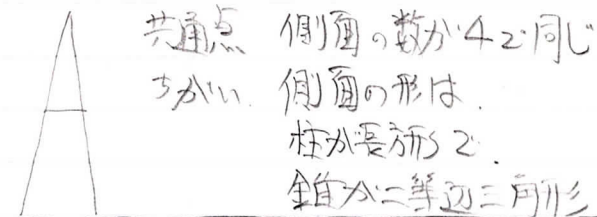 共通点 側面の数が4で同じ
ちがい 側面の形は、
柱が長方形で、
錐が二等辺三角形